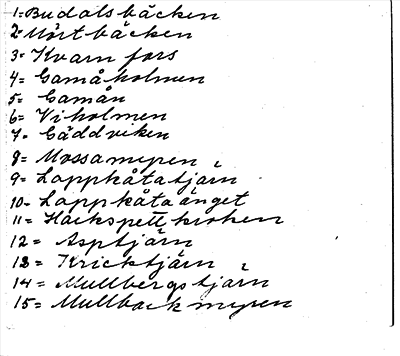 1=Budalsbäcken
2=Mörtbäcken
3= Kvarn fors
4= Gamåholmen
5= Gamån
6= Viholmen
7= Gäddviken
8= Mossamyren
9= Lappkåtatjarn
10= Lappkåtaänget
11= Hackspettkroken
12= Asptjärn
13= Kricktjärn
14= Mullbergstjarn
15= Mullbackmyren